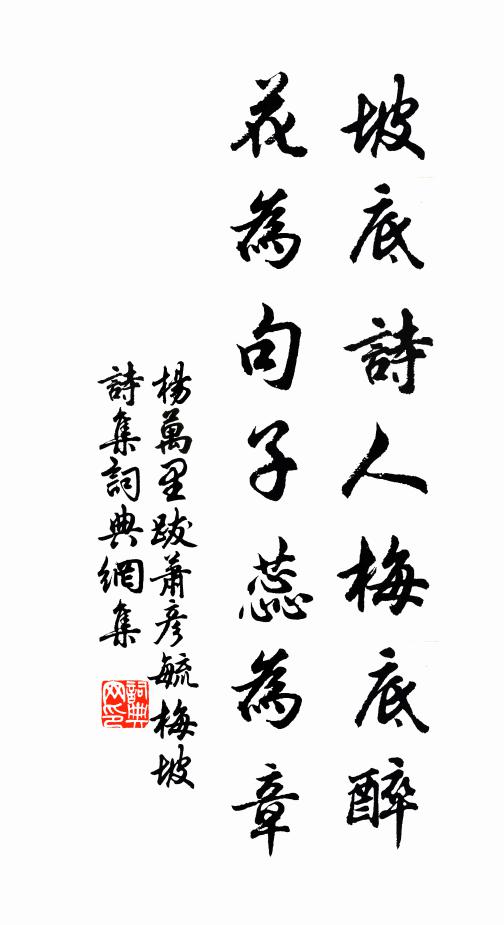 坡底詩人梅底醉
花為句子蕊為章
楊萬里跋蕭彥毓梅坡
詩集詞典網集
詞典網印